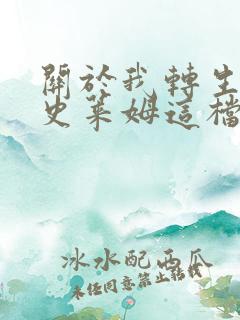 關於我轉生
史萊姆這檔
冰水配西瓜
未經同意禁止轉載